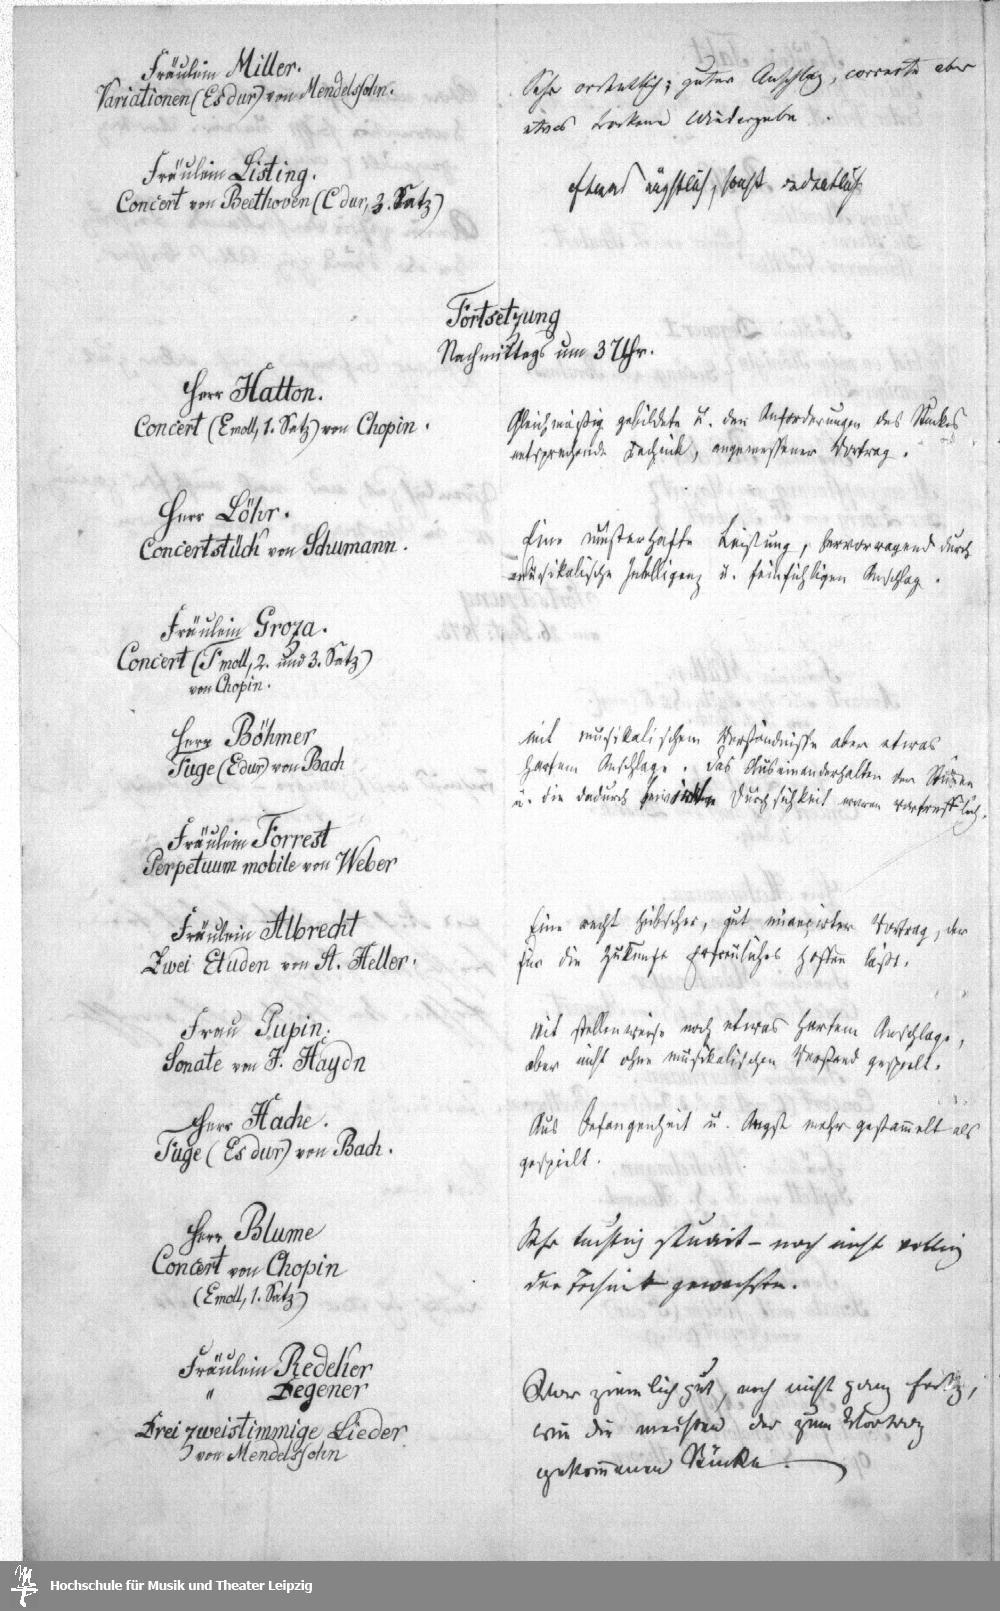 Fräulein Miller.
Variationen (Es dur) von Mendelssohn.
Sehr ordentlich; guter Anschlag, correcte aber
etwas trockene Wiedergabe.
Fräulein Listing.
Concert von Beethoven (C dur, 3. Satz)
Etwas ängstlich, sonst ordentlich
Fortsetzung
Nachmittags um 3 Uhr.
Herr Hatton.
Concert (Emoll, 1. Satz) von Chopin.
Gleichmäßig gebildete u. den Anforderungen des Stückes
entsprechende Technik, angemessener Vortrag.
Herr Löhr.
Concertstück von Schumann.
Eine musterhafte Leistung, hervorragend durch
musikalische Intelligenz u. feinfühligen Anschlag.
Fräulein Groza.
Concert (Fmoll, 2. und 3. Satz)
von Chopin.
Herr Böhmer
Fuge (Edur) von Bach
Mit musikalischem Verständnisse aber etwas
hartem Anschlage. Das Auseinanderhalten der Stimmen
u. die dadurch bewirkte Durchsichtigkeit waren vortrefflich.
Fräulein Forrest
Perpetuum mobile von Weber
Fräulein Albrecht
Zwei Etuden von St. Heller.
Eine recht hübscher, gut nüancirter Vortrag, der
für die Zukunft Erfreuliches hoffen läßt.
Frau Pupin.
Sonate von J. Haydn
Mit stellenweise noch etwas hartem Anschlage,
aber nicht ohne musikalischen Verstand gespielt.
Herr Hache.
Fuge (Es dur) von Bach.
Aus Befangenheit u. Angst mehr gestam̅elt als
gespielt.
Herr Blume
Concert von Chopin
(Emoll, 1. Satz)
Sehr tüchtig studirt – noch nicht völlig
der Technik gewachsen.
Fräulein Redeker
" Degener
Drei zweistimmige Lieder
von Mendelssohn
War ziemlich gut, noch nicht ganz fertig,
wie die meisten der zum Vortrag
gekom̅enen Stücke.
Hochschule für Musik und Theater Leipzig